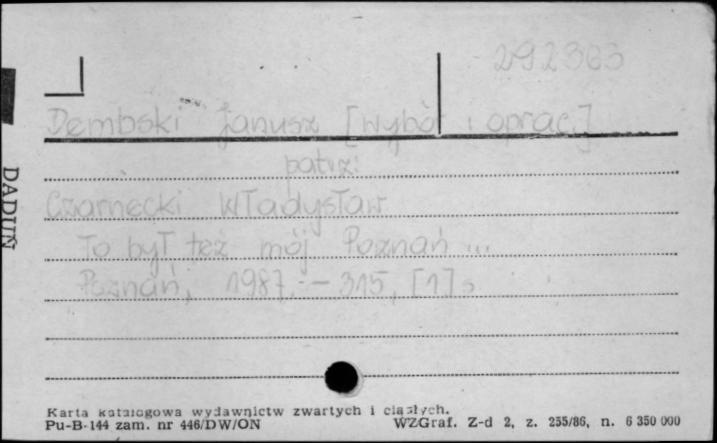 292363
Dembski Janusz [wybór i oprac.]
patrz:
Czarnecki Władysław
To był też mój Poznań ...
Poznań, 1987. - 315, [1] s
DADUŃ
Karta katalogowa wydawnictw zwartych i ciągłych.
Pu-B-144 zam. nr 446/DW/ON WZGraf. Z-d 2, z. 255/86, n. 6 350 000